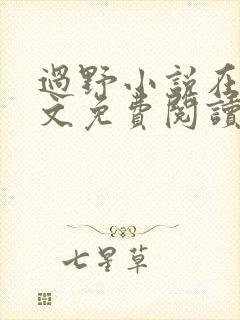 過野小说在
文免費閱讀
七星草